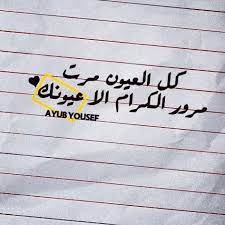 كل العيون مرت
مرور الكرام الا عيونك
AYUB YOUSEF